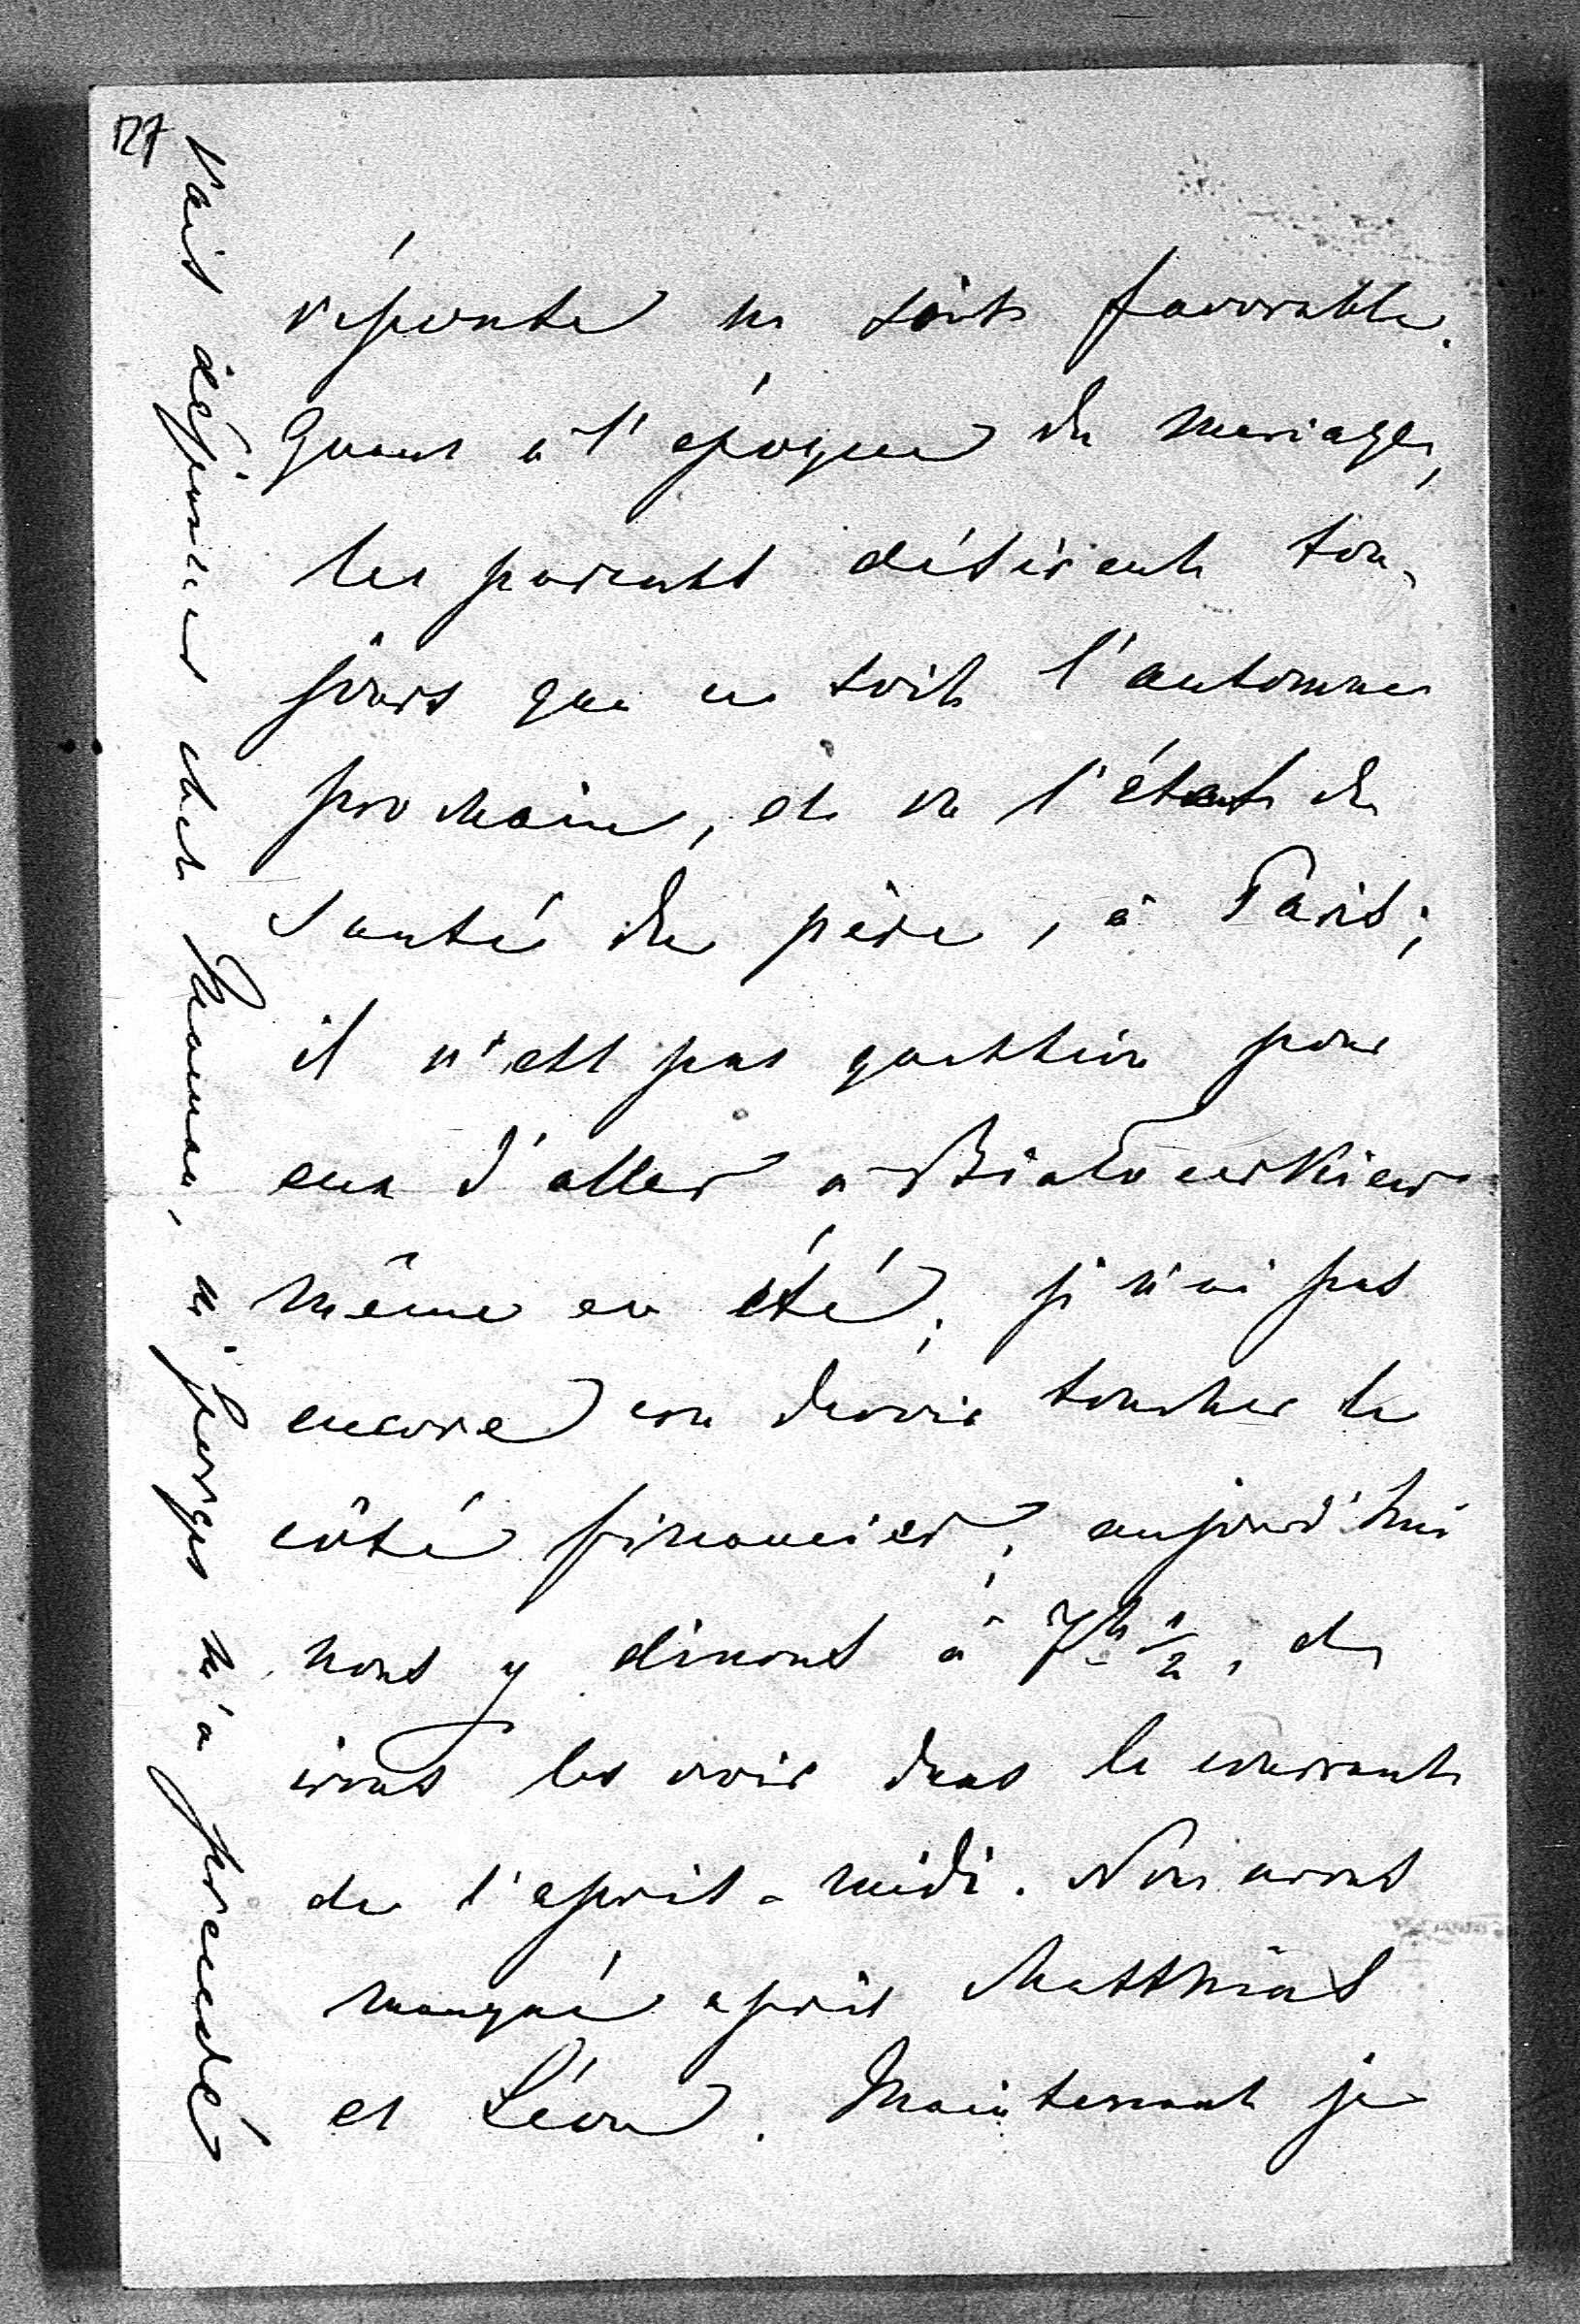 127
réponse ne soit favorable.
Quant à l'époque du mariage,
les parents désirent tou-
jours que ce soit l'automne
prochain, et vu l'état de
santé du père, à Paris;
il n'est pas question pour
eux d'aller à Białocerkiew
même en été; je n'ai pas
encore cru devoir toucher le
côté financier; aujourd'hui
nous y dinons à 7h 1/2, et
irons les voir dans le courant
de l'après-midi. Nous avons
manqué après Matthias
et Léon. Maintenant je
vais déjeuner chez Maman, où Georges m'a précédé